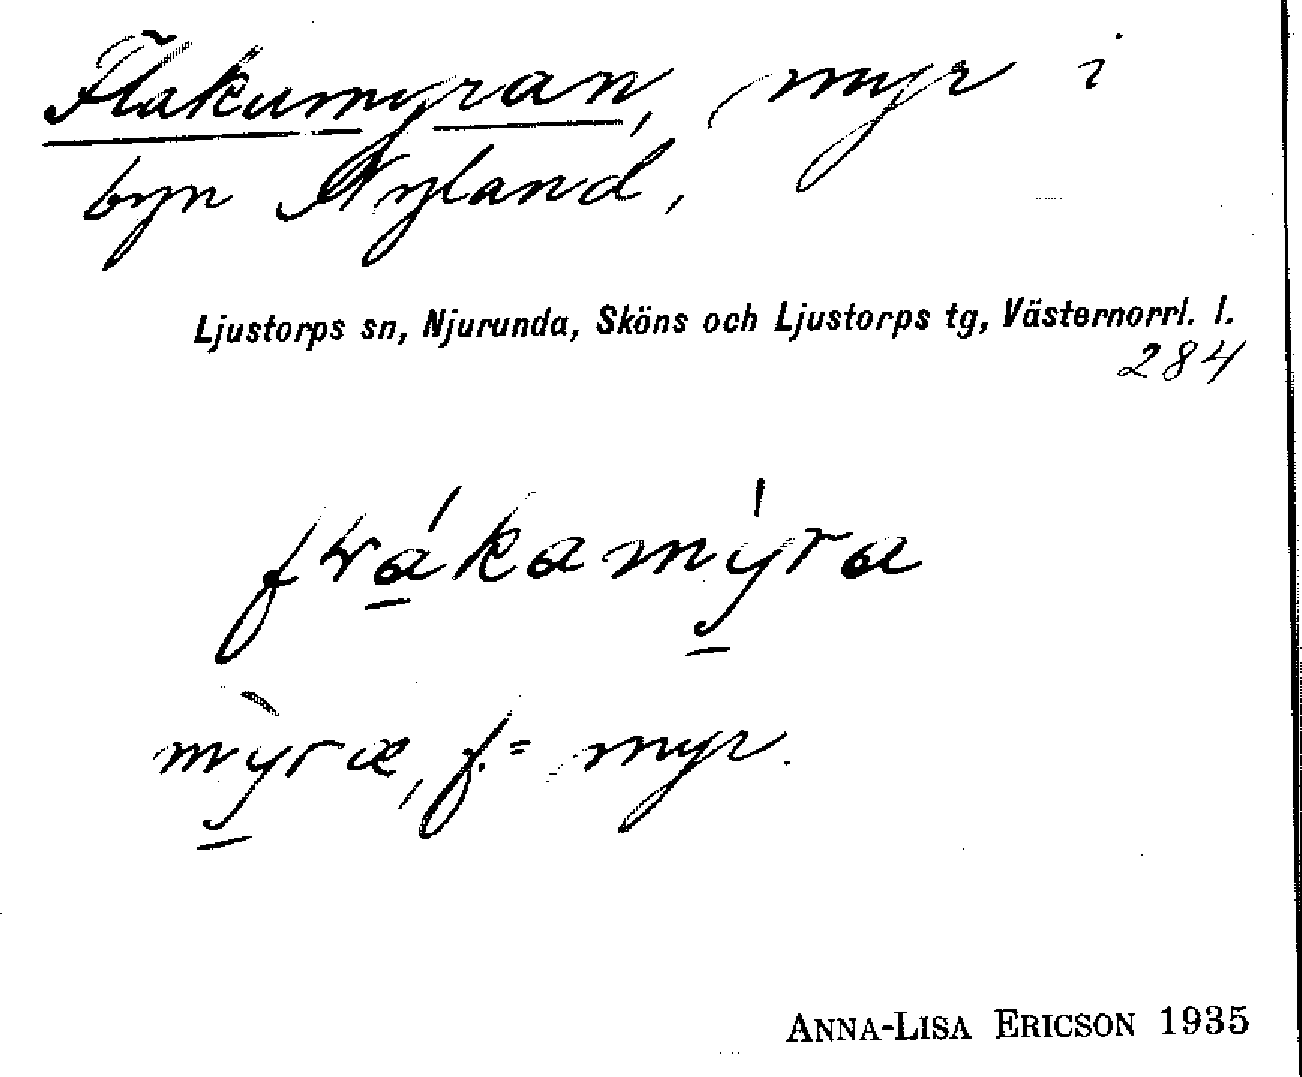 Flakumyran, myr i
byn Nyland,
Ljustorps sn, Njurunda, Sköns och Ljustorps tg, Västernorrl. l.
284
myræ, f. = myr.
ANNA-LISA ERICSON 1935